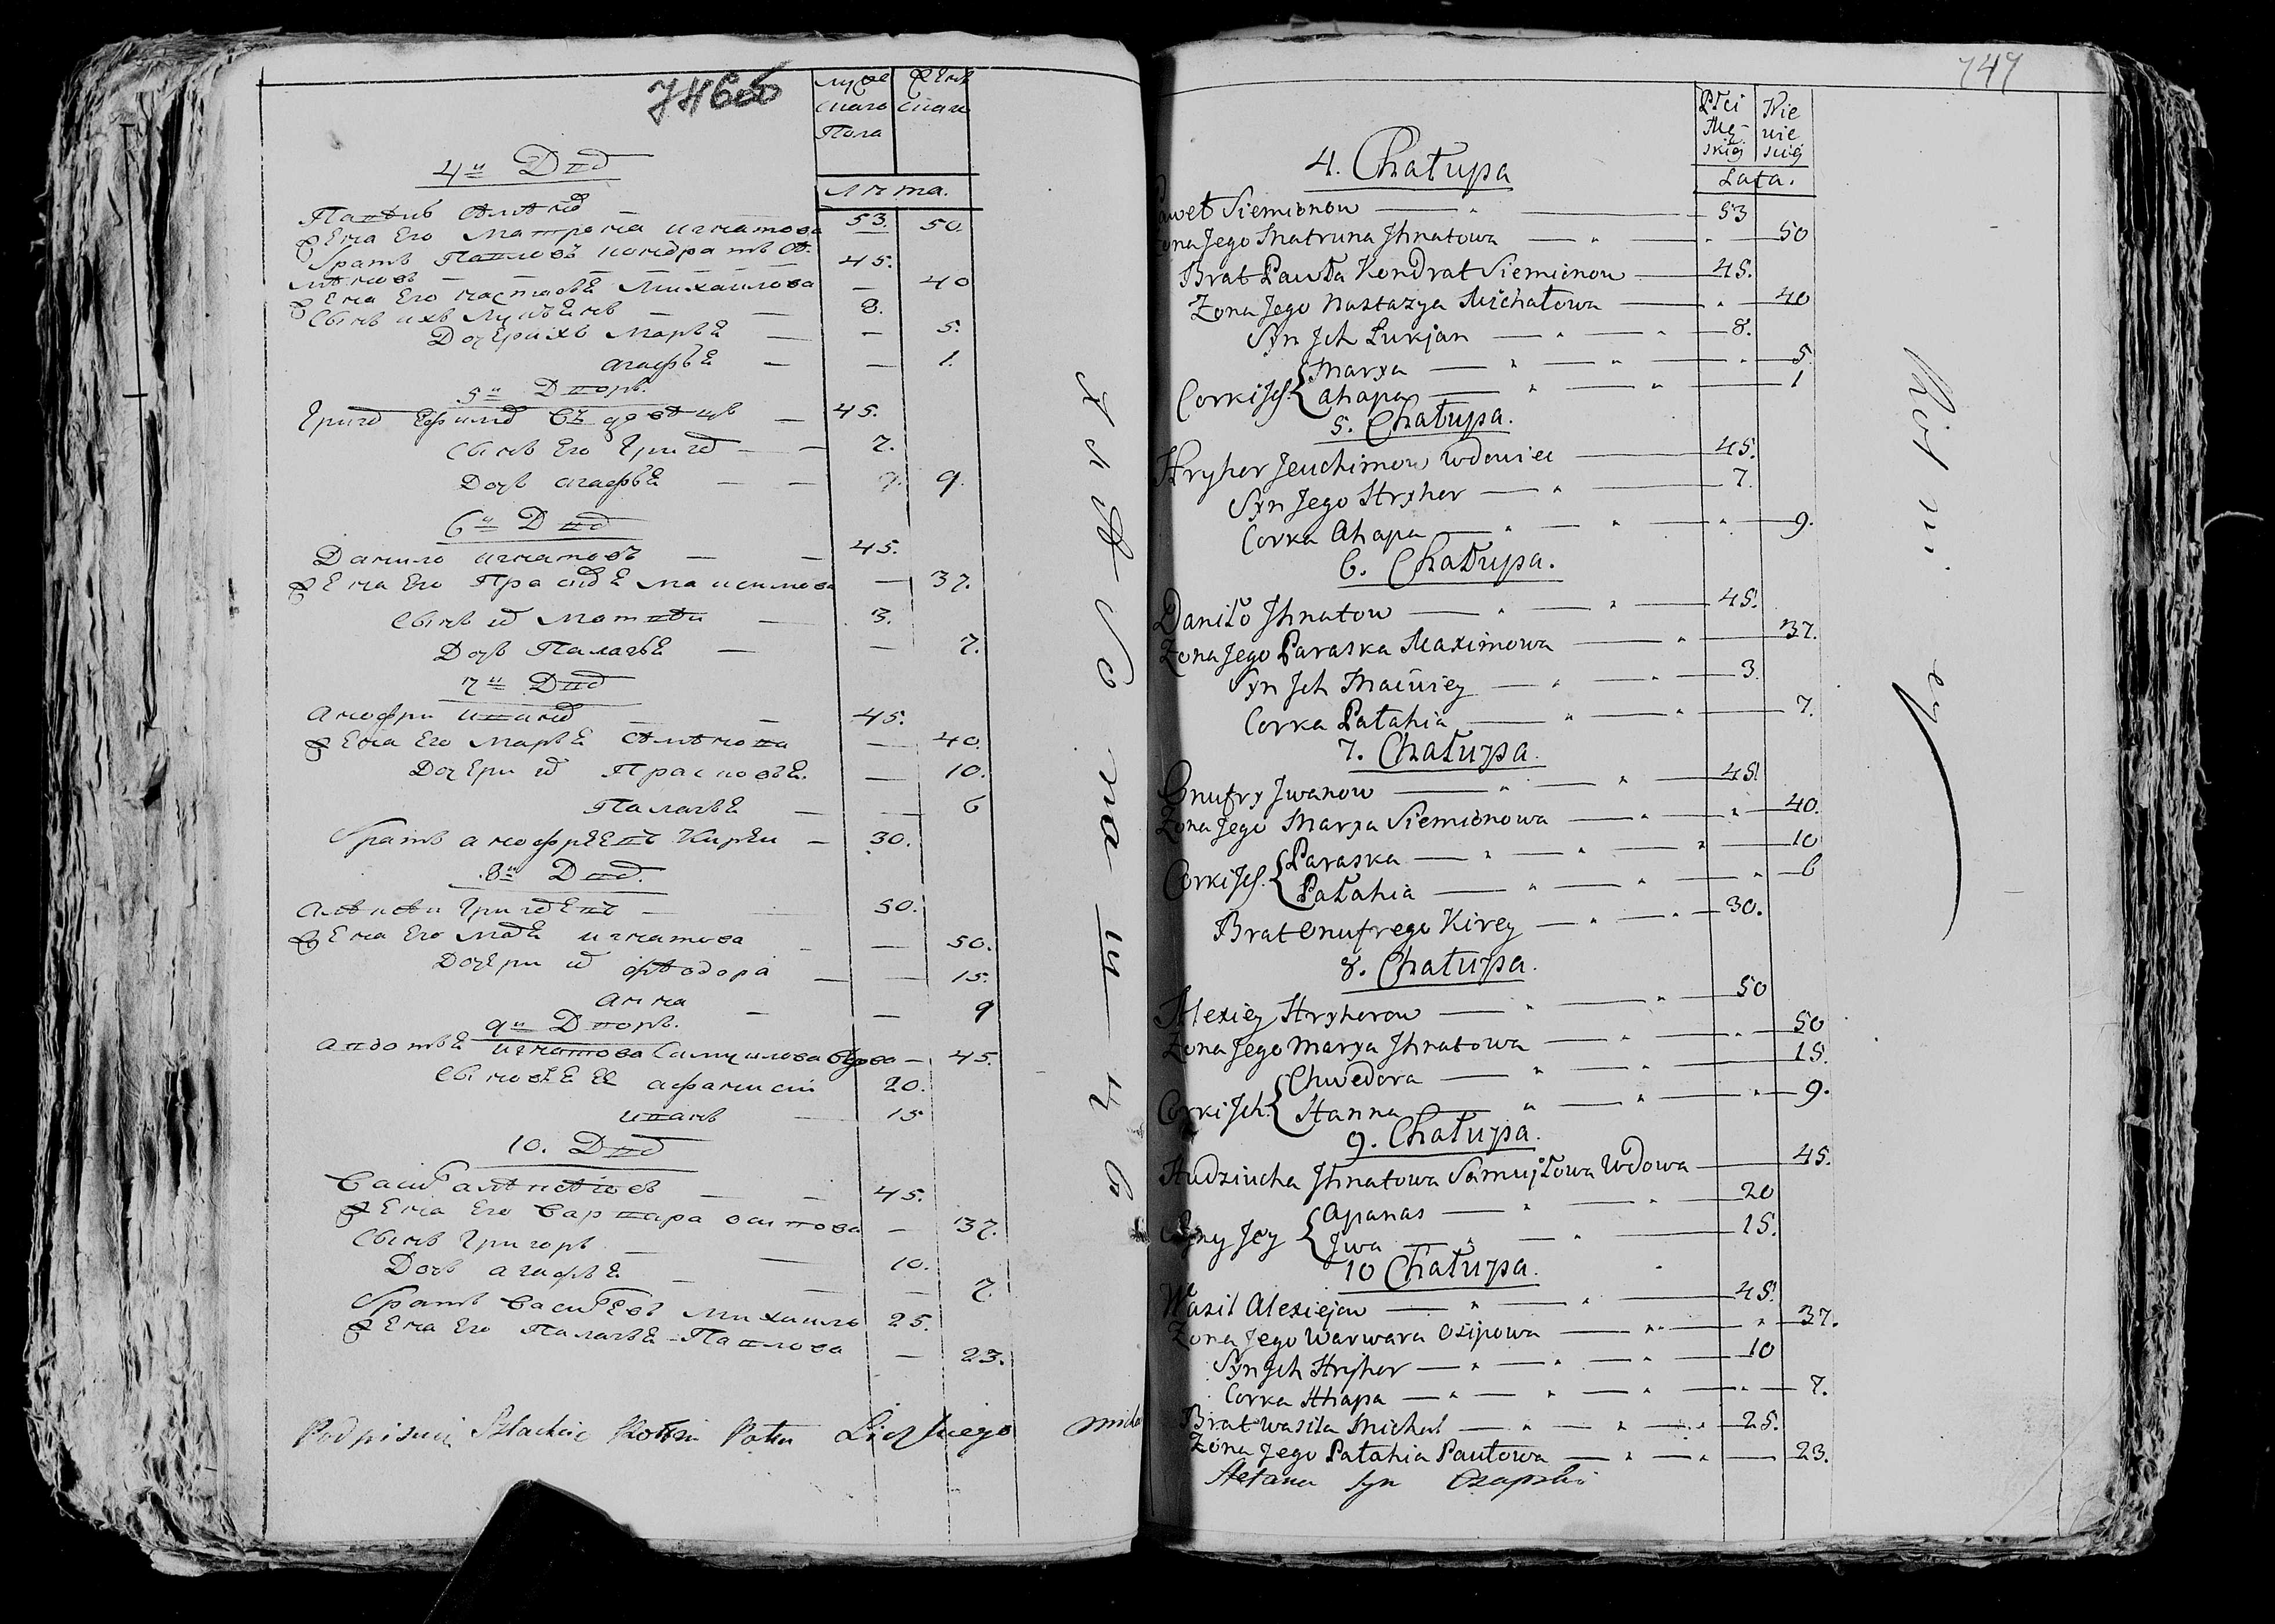 746об
Мужескаго Пола
Женскаго
Лѣта.
4й Двор
Павел Семенов — 53.
Жена Его Матрона Игнатова — 50.
Братъ Павловъ Кондратъ Се-
меновъ — 45.
Жена Его Настасья Михаилова — 40
Сынъ ихъ Лукьянъ — 8.
Дочери ихъ Марья — 5.
Агафья — 1.
5й Дворъ.
Григор Ефимов вдовецъ — 45.
Сынъ Его Григор — 7.
Дочь Агафья — 9.
6й Двор
Данило Игнатовъ — 45.
Жена Его Прасковья Максимова — 37.
Сынъ их Матвѣи — 3.
Дочь Палагья — 7.
7й Двор
Анофри Иванов — 45.
Жена Его Марья Семенова — 40.
Дочери их Прасковья. — 10.
Палагья — 6
Братъ Анофрьевъ Кирѣи — 30.
8й Двор.
Алексеи Григорьевъ — 50.
Жена Его Марья Игнатова — 50.
Дочери их Феодора — 15.
Анна — 9
9й Дворъ.
Авдотья Игнатова Самуилова вдова — 45.
Сыновья Ее Афанасии 20.
Иванъ — 15
10. Двор
Василь Алексеевъ — 45.
Жена Его Варвара Осипова — 37.
Сынъ Григоръ — 10.
Дочь Агафья — 7.
Братъ Васильевъ Михаилъ 25.
Жена Его Палагья Павлова — 23.
Podpisuię Szlachcic
747
Płci Mę-skiej
Nie wie sciej
Lata.
4. Chałupa
Paweł Siemionow — 53
Zona Jego Matruna Jhnatowa — 50
Brat Pawła Kondrat Siemionow — 45.
Zona Jego Nastazya Michałowa — 40
Syn Jch Lukjan — 8.
Corki Jch. { Marya — 5.
Ahapa — 1
5. Chałupa.
Hryhor Jeuchimow Wdowiec — 45.
Syn Jego Hryhor — 7.
Corka Ahapa — 9.
6. Chałupa.
Daniło Jhnatow — 45.
Zona Jego Paraska Maximowa — 37.
Syn Jch Maciey — 3.
Corka Pałahia — 7.
7. Chałupa.
Onufry Jwanow — 45.
Zona Jego Marya Siemionowa — 40.
Corki Jch. { Paraska — 10
Pałahia — 6
Brat Onufrego Kirey — 30.
8. Chałupa.
Alexiey Hryhorow — 50
Zona Jego Marya Jhnatowa — 50
Corki Jch. { Chwedora — 15.
Hanna — 9.
9. Chałupa.
Hudziucha Jhnatowa Samujłowa Wdowa — 45.
Syny Jey { Apanas — 20
Jwa — 15.
10 Chałupa.
Wasil Alexiejow — 45.
Zona Jego Warwara Osipowa — 37.
Syn Jch Hryhor — 10
Corka Ahapa — 7.
Brat Wasila Michał — 25.
Zona Jego Pałahia Pawłowa — 23.
Stefana syn Czapski